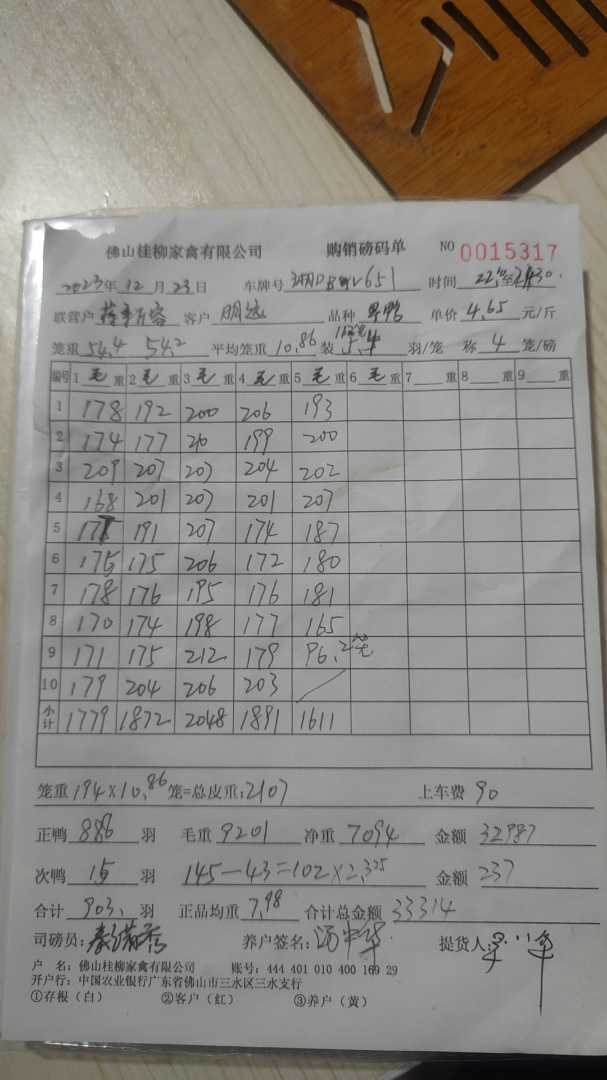 佛山桂柳家禽有限公司 购销磅码单 NO 0015317
2023年12月23日 车牌号 651 时间
联营户 客户 明远 品种 单价 4.65 元/斤
笼重 54.4 54.2 平均笼重 10.86 装 羽/笼 称 4 笼/磅
编号 1 毛 重 2 毛 重 3 毛 重 4 毛 重 5 毛 重 6 毛 重 7 重 8 重 9 重
1 178 192 200 206 193
2 174 177 20 199 200
3 209 207 207 204 202
4 168 201 207 201 207
5 191 207 174 187
6 175 175 206 172 180
7 178 176 195 176 181
8 170 174 198 177 165
9 171 175 212 179 96. 2笼
10 179 204 206 203
小计 1779 1872 2048 1891 1611
笼重 194×10.86 笼=总皮重: 2107 上车费 90
正鸭 888 羽 毛重 9201 净重 7094 金额 32987
次鸭 15 羽 145-43=102×2.325 金额 237
合计 903. 羽 正品均重 7.98 合计总金额 33314
司磅员: 养户签名: 提货人:
户 名: 佛山桂柳家禽有限公司 账号: 444 401 010 400 169 29
开户行: 中国农业银行广东省佛山市三水区三水支行
①存根(白) ②客户(红) ③养户(黄)